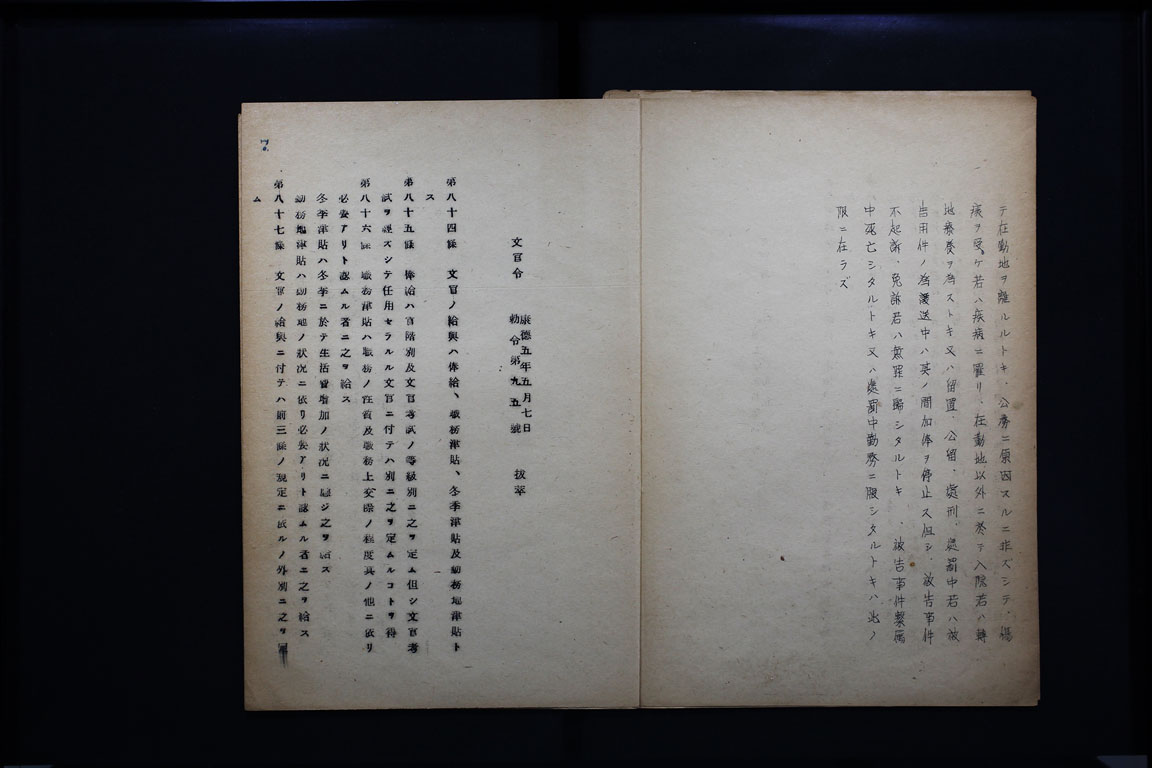 テ在勤地ヲ離ルルトキ、公務ニ原因スルニ非ズシテ、傷
痍ヲ受ケ若ハ疾病ニ罹リ、在勤地以外ニ於テ入院若ハ轉
地療養ヲ為ストキ又ハ留置、公留、處刑、處罰中若ハ被
告用件ノ為護送中ハ其ノ間加俸ヲ停止ス但シ、被告事件
不起訴、免訴若ハ無罪ニ歸シタルトキ、被告事件繫属
中死亡シタルトキ又ハ處罰中勤務ニ服シタルトキハ此ノ
限ニ在ラズ
文官令
康德五年五月七日
勅令第九五號
拔萃
第八十四條 文官ノ給與ハ俸給、職務津貼、冬季津貼及勤務地津貼ト
ス
第八十五條 俸給ハ官階別及文官考試ノ等級別ニ之ヲ定ム但シ文官考
試ヲ經ズシテ任用セラルル文官ニ付テハ別ニ之ヲ定ムルコトヲ得
第八十六條 職務津貼ハ職務ノ性質及職務上交際ノ程度其ノ他ニ依リ
必要アリト認ムル者ニ之ヲ給ス
冬季津貼ハ冬季ニ於テ生活費增加ノ狀況ニ應ジ之ヲ給ス
勤務地津貼ハ勤務地ノ狀況ニ依リ必要アリト認ムル者ニ之ヲ給ス
第八十七條 文官ノ給與ニ付テハ前三條ノ規定ニ依ルノ外別ニ之ヲ
ム
7